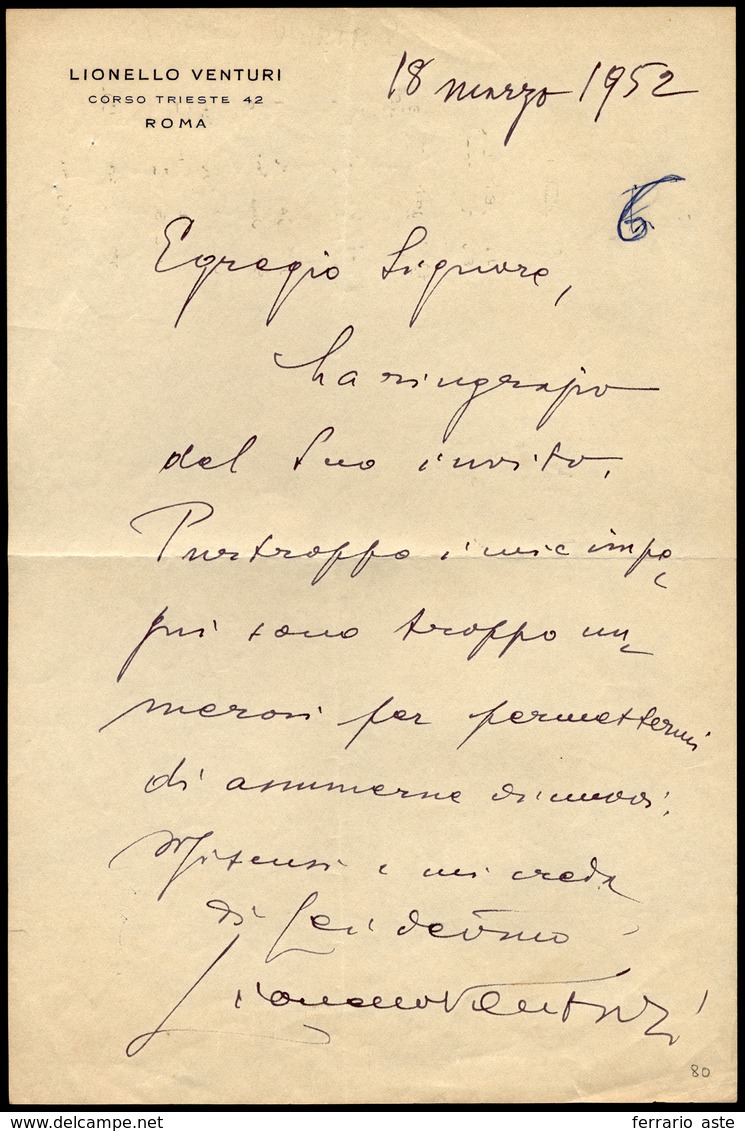 LIONELLO VENTURI
CORSO TRIESTE 42
ROMA
18 marzo 1952
6
Egregio Signore,
La ringrazio
del Suo invito.
Purtroppo i miei impe-
gni sono troppo nu-
merosi per permettermi
di assumerne di nuovi.
Mi scusi e mi creda
di Lei dev.mo
Lionello Venturi
80
www.delcampe.net
ferrario aste